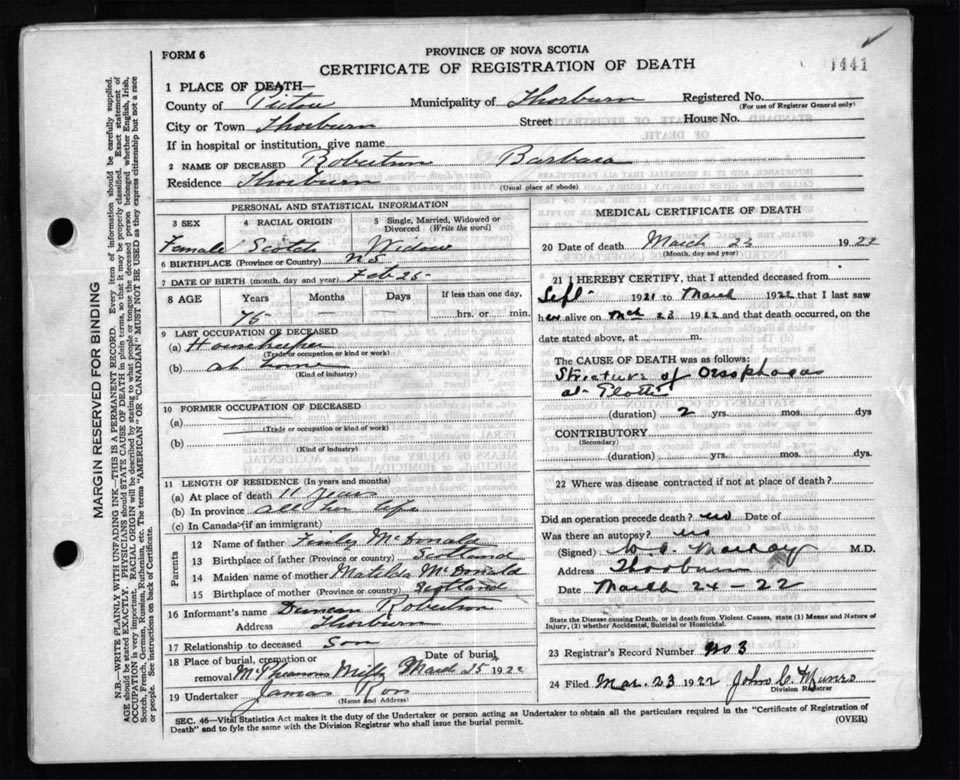 FORM 6
PROVINCE OF NOVA SCOTIA
CERTIFICATE OF REGISTRATION OF DEATH
1441
1 PLACE OF DEATH—
County of Pictou Municipality of Thorburn Registered No.
(For use of Registrar General only)
City or Town Thorburn Street House No.
If in hospital or institution, give name
2 NAME OF DECEASED Robertson Barbara
Residence Thorburn
(Usual place of abode)
PERSONAL AND STATISTICAL INFORMATION
3 SEX 4 RACIAL ORIGIN 5 Single, Married, Widowed or Divorced (Write the word)
Female Scotch Widow
6 BIRTHPLACE (Province or Country) N S
7 DATE OF BIRTH (month, day and year) Feb 25
8 AGE Years Months Days If less than one day,
75 — hrs. or min.
9 LAST OCCUPATION OF DECEASED
(a) Housekeeper
(Trade or occupation or kind of work)
(b) at home
(Kind of industry)
10 FORMER OCCUPATION OF DECEASED
(a)
(Trade or occupation or kind of work)
(b)
(Kind of industry)
11 LENGTH OF RESIDENCE (In years and months)
(a) At place of death 11 years
(b) In province all her life
(c) In Canada (if an immigrant)
Parents
12 Name of father McDonald
13 Birthplace of father (Province or country) Scotland
14 Maiden name of mother Matilda McDonald
15 Birthplace of mother (Province or country) Scotland
16 Informant's name Duncan Robertson
Address Thorburn
17 Relationship to deceased Son
18 Place of burial, cremation or removal Date of burial
March 25 1922
19 Undertaker James Ross
(Name and Address)
MEDICAL CERTIFICATE OF DEATH
20 Date of death March 22 1922
(Month, day and year)
21 I HEREBY CERTIFY, that I attended deceased from
Sept 1921 to March 1922 that I last saw
her alive on Mch 23 1922 and that death occurred, on the
date stated above, at m.
The CAUSE OF DEATH was as follows:
Stricture of Oesophagus
(duration) 2 yrs. mos. dys
CONTRIBUTORY.
(Secondary)
(duration) yrs. mos. dys.
22 Where was disease contracted if not at place of death?
Did an operation precede death? no Date of
Was there an autopsy? no
(Signed) M.D.
Address Thorburn
Date March 24 - 22
State the Disease causing Death, or in death from Violent Causes, state (1) Means and Nature of
Injury, (2) whether Accidental, Suicidal or Homicidal.
23 Registrar's Record Number No 3
24 Filed Mar. 23 1922 John C Munro
Division Registrar
SEC. 46—Vital Statistics Act makes it the duty of the Undertaker or person acting as Undertaker to obtain all the particulars required in the "Certificate of Registration of
Death" and to fyle the same with the Division Registrar who shall issue the burial permit.
(OVER)
MARGIN RESERVED FOR BINDING
N.B.—WRITE PLAINLY WITH UNFADING INK—THIS IS A PERMANENT RECORD. Every item of information should be carefully supplied.
AGE should be stated EXACTLY. PHYSICIANS should STATE CAUSE OF DEATH in plain terms, so that it may be properly classified. Exact statement of
OCCUPATION is very important. RACIAL ORIGIN will be described by stating to what people or tongue the deceased person belonged whether English, Irish,
Scotch, French, German, Russian, Ruthenian, etc. The terms "AMERICAN" OR "CANADIAN" MUST NOT BE USED as they express citizenship but not a race
or people. See instructions on back of Certificate.